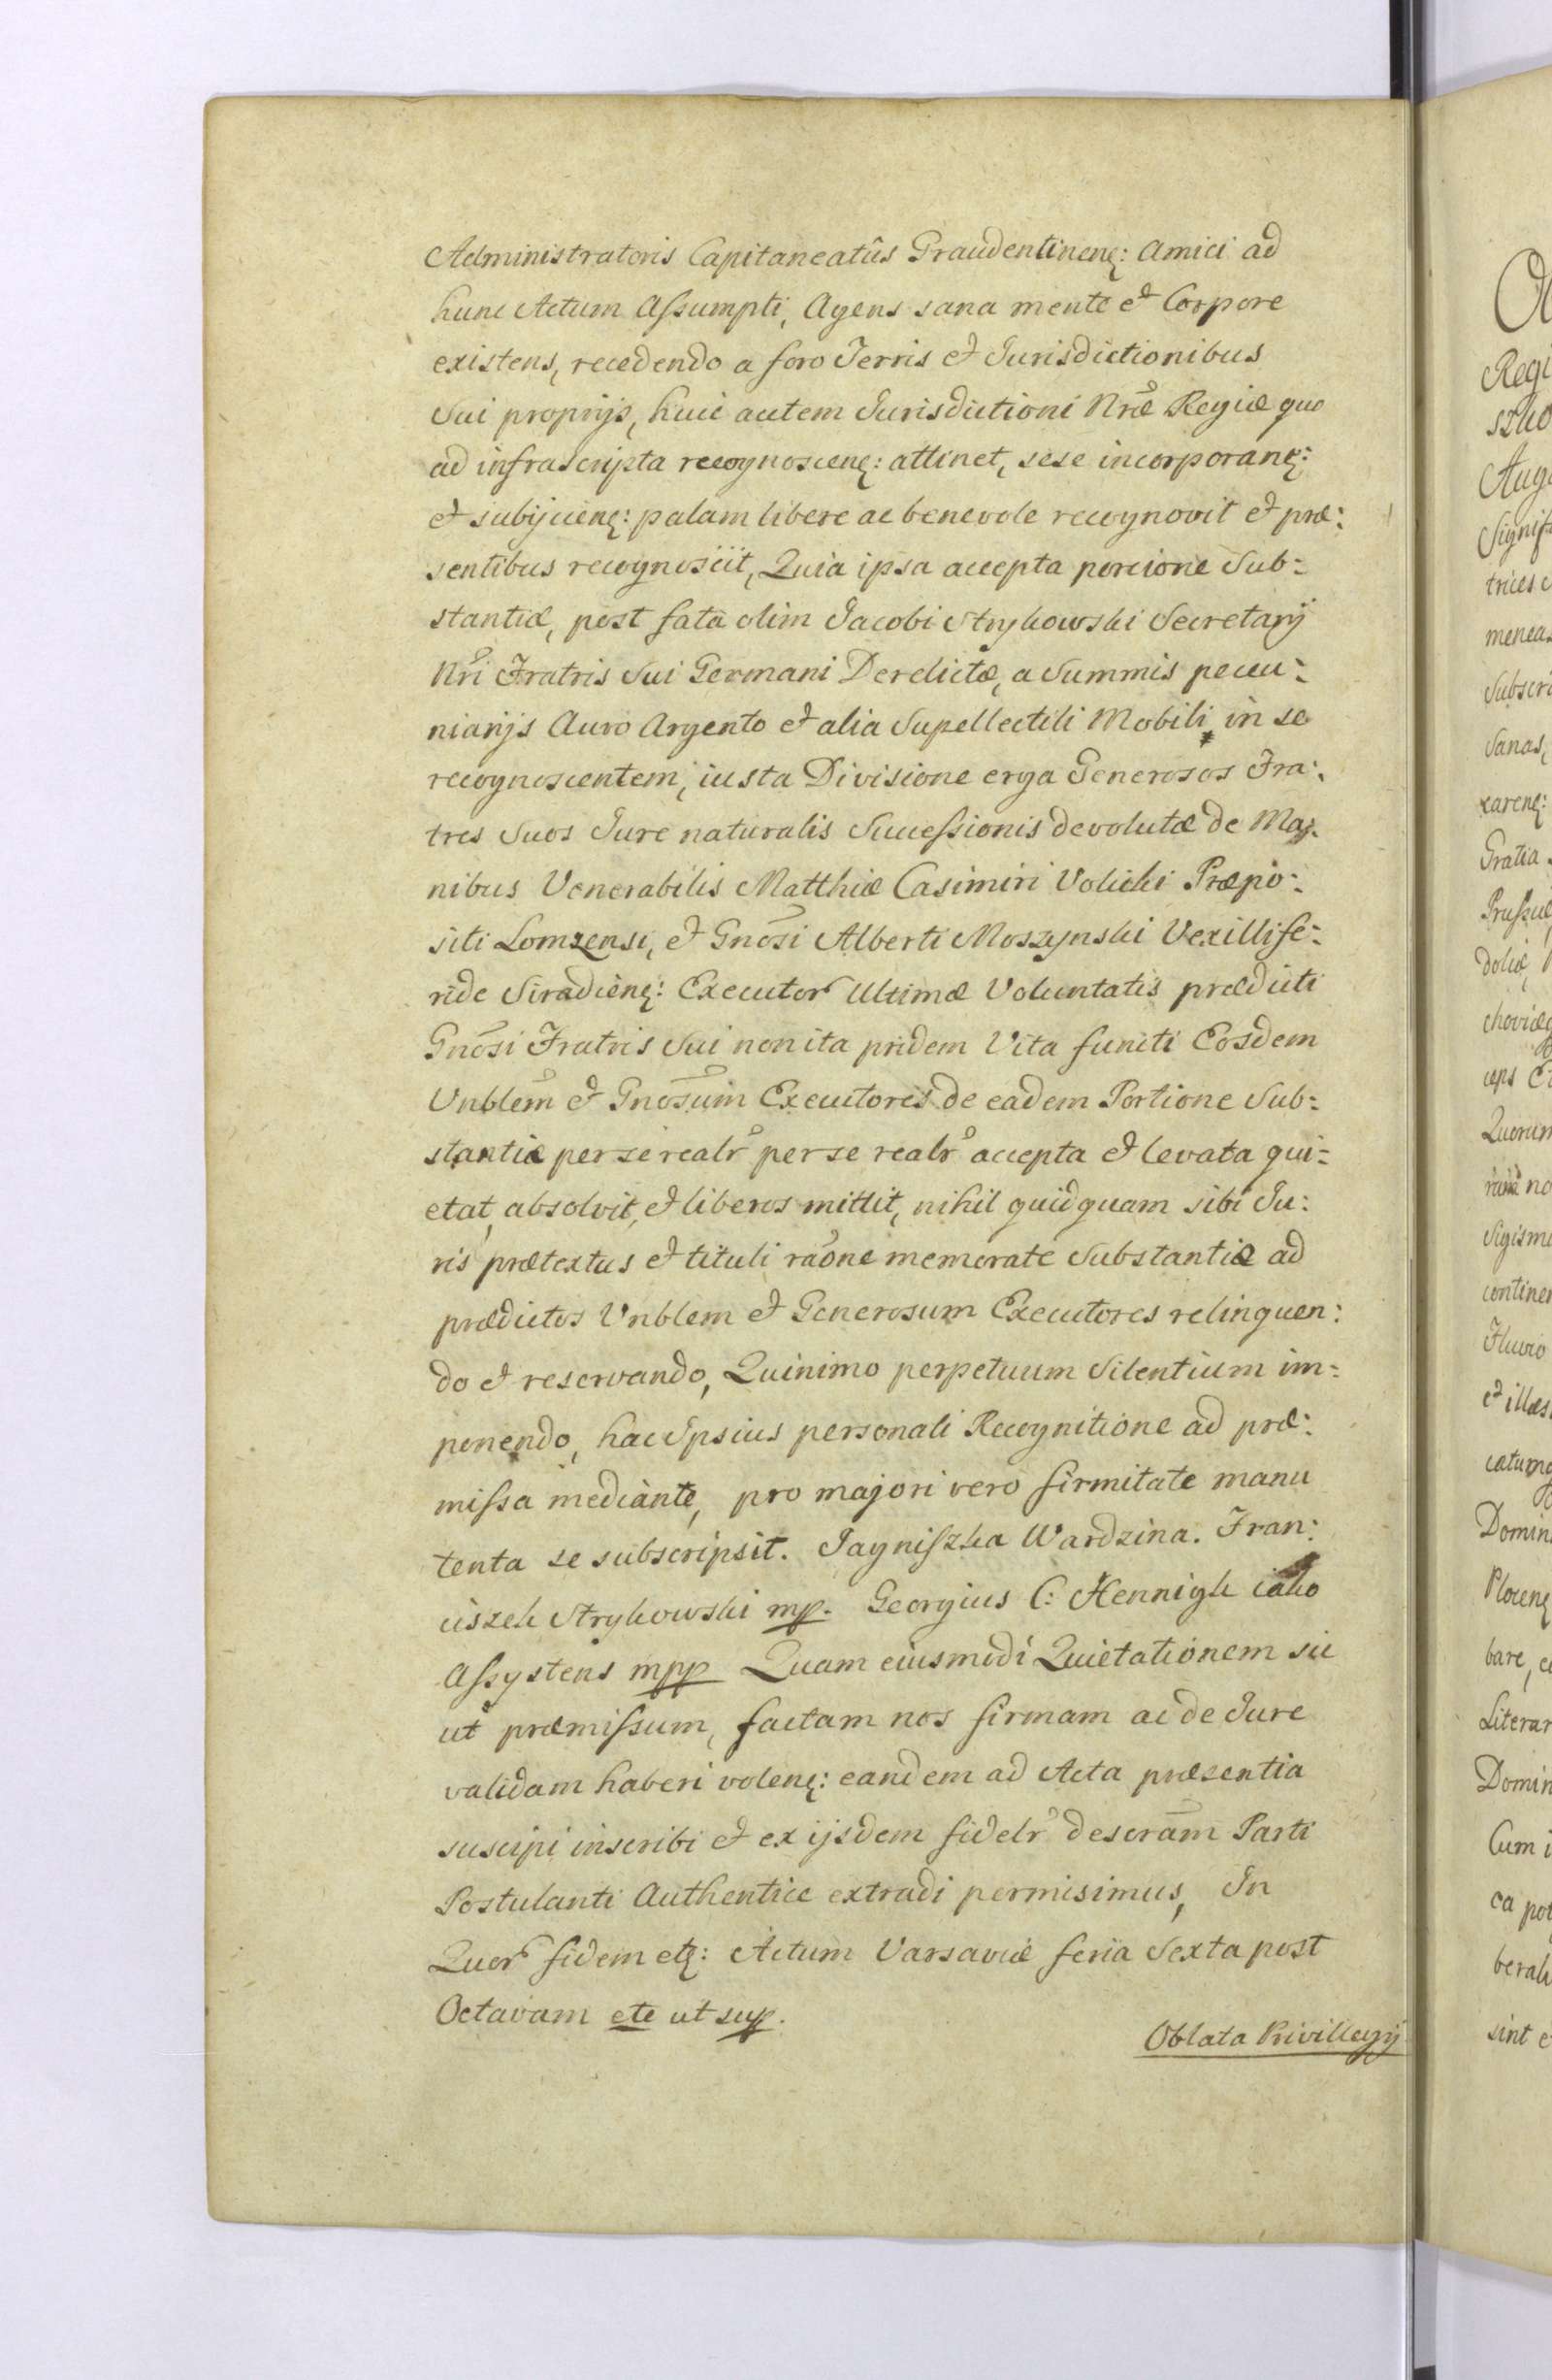 Administratoris Capitaneatûs Graudentinenę: Amici ad
hunc Actum Assumpti, Agens sana mente et Corpore
existens, recedendo a foro Terris et Jurisdictionibus
Sui proprijs, huic autem Jurisdictioni Nræ Regiæ quo
ad infrascripta recognoscenę: attinet, sese incorporanę:
et subijcienę: palam libere ac benevole recognovit et præ:
sentibus recognoscit, Quia ipsa accepta porcione Sub:
stantiæ, post fata olim Jacobi Strykowski Secretarij
Nri Fratris Sui Germani Derelictæ, a Summis pecu:
niarijs Auro Argento et alia Supellectili Mobili in se
recognoscentem, iusta Divisione erga Generosos Fra:
tres Suos Jure naturalis Successionis devolutæ de Ma:
nibus Venerabilis Matthiæ Casimiri Volicki Præpo:
siti Lomzensi, et Gnosi Alberti Moszynski Vexillife:
ride Siradienę: Executor Ultimæ Voluntatis prædicti
Gnosi Fratris Sui non ita pridem Vita functi Eosdem
Vnblem et Gnosum Executores de eadem Portione Sub:
stantiæ per se realr per se realr accepta et levata qui:
etat, absolvit, et liberos mittit, nihil quidquam sibi Ju:
ris prætextus et tituli raõne memorate Substantiæ ad
prædictos Vnblem et Generosum Executores relinquen:
do et reservando, Quinimo perpetuum Silentium im:
ponendo, hac Ipsius personali Recognitione ad præ:
missa mediante, pro majori vero firmitate manu
tenta se subscripsit. Jagniszka Wardzina. Fran:
ciszek Strykowski mp. Georgius C: Hennigk iako
Assystens mpp Quam eiusmodi Quietationem sic
ut præmissum, factam nos firmam ac de Jure
validam haberi volenę: eandem ad Acta præsentia
suscipi inscribi et ex ijsdem fidelr descram Parti
Postulanti Authentice extradi permisimus, In
Quor fidem etę: Actum Varsaviæ feria Sexta post
Octavam etc ut sup.
Oblata Privillegij